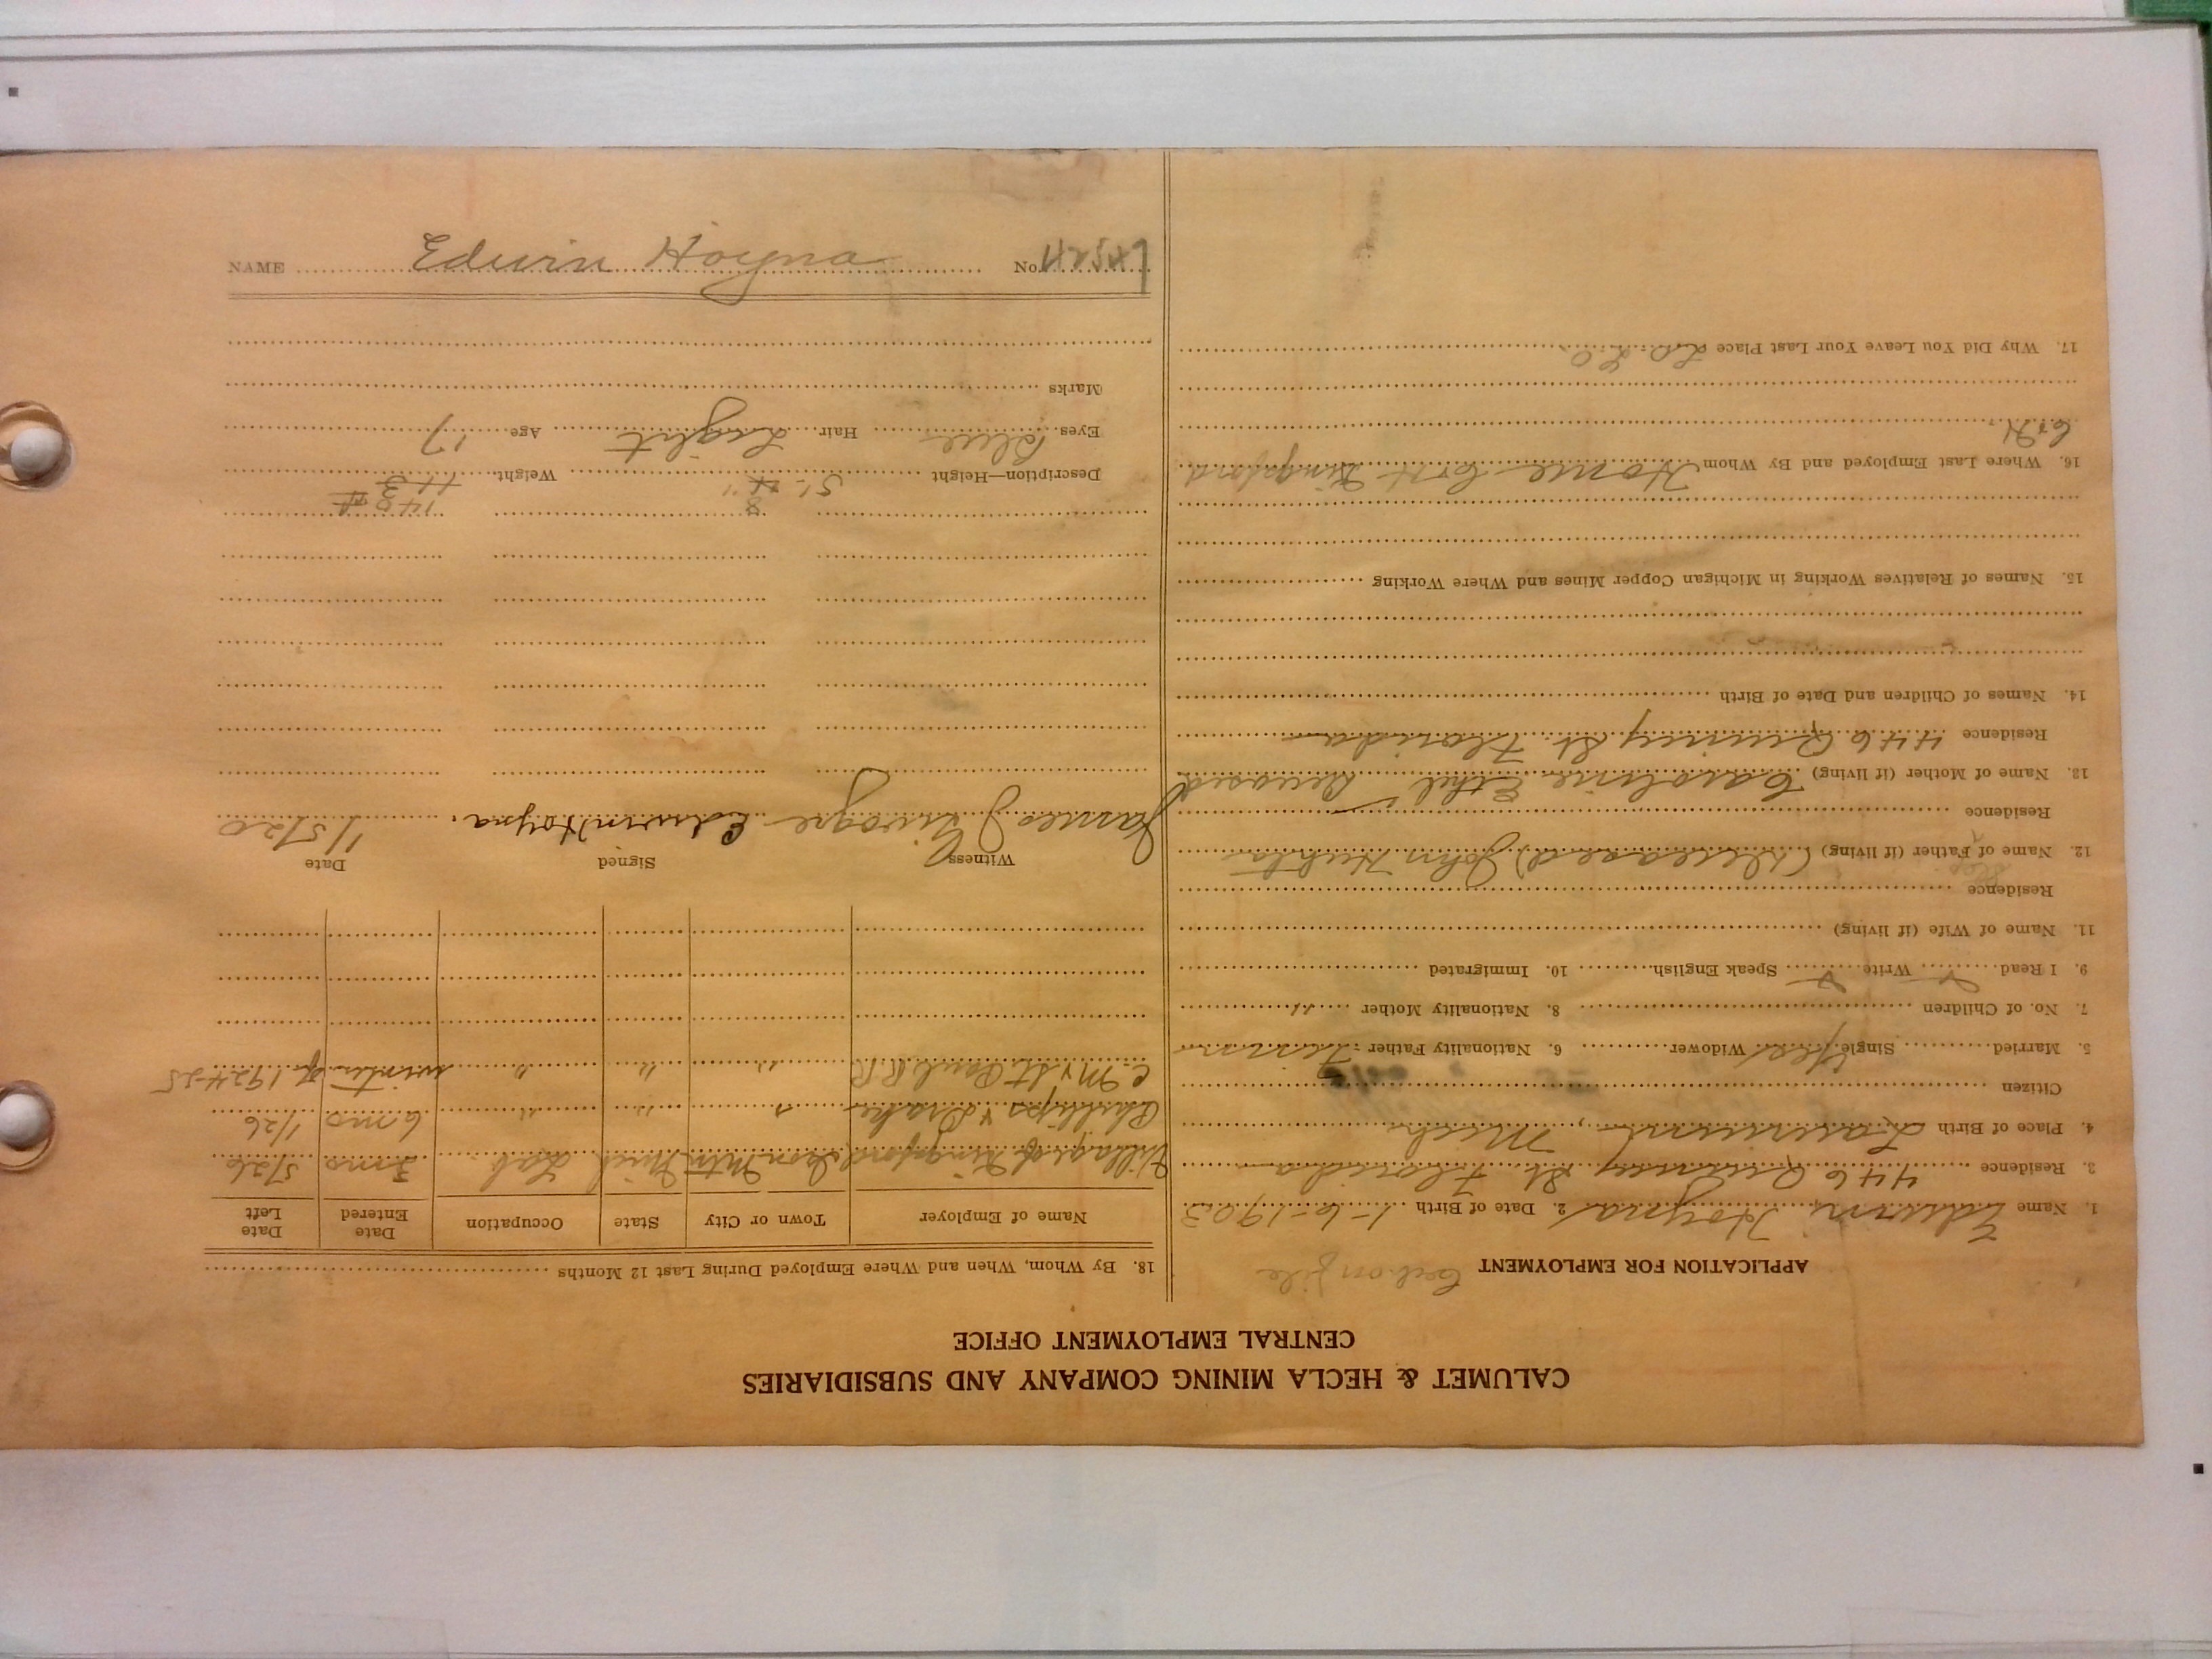 CALUMET & HECLA MINING COMPANY AND SUBSIDIARIES
CENTRAL EMPLOYMENT OFFICE
APPLICATION FOR EMPLOYMENT on file
1. Name Edwin Hoyna 2. Date of Birth 1-6-1903
3. Residence 446 Quincy St. Florida
4. Place of Birth Laurium, Mich
Citizen
5. Married Single Yes Widower 6. Nationality Father Finn
7. No. of Children 8. Nationality Mother "
9. I Read Write Speak English 10. Immigrated
11. Name of Wife (if living)
Residence
Step
12. Name of Father (if living) (Deceased) John Huhta
Residence
13. Name of Mother (if living) Caroline Ethel Deceased
Residence 446 Quincy St. Florida
14. Names of Children and Date of Birth
15. Names of Relatives Working in Michigan Copper Mines and Where Working
16. Where Last Employed and By Whom Home Kingsford
C & H
17. Why Did You Leave Your Last Place
18. By Whom, When and Where Employed During Last 12 Months
Name of Employer Town or City State Occupation Date Entered Date Left
Village of Kingsford Iron Mtn Mich Lab. 3 mo 5/26
Phillips & Drake " " " 6 mo 1/26
C. M & St. Paul R R " " " winter of 1924-25
Witness Signed Date
James J Edwin Hoyna. 1/5/20
8 148
Description—Height 5'-4" Weight 113
Eyes Blue Hair Light Age 17
Marks
NAME Edwin Hoyna No. 42547